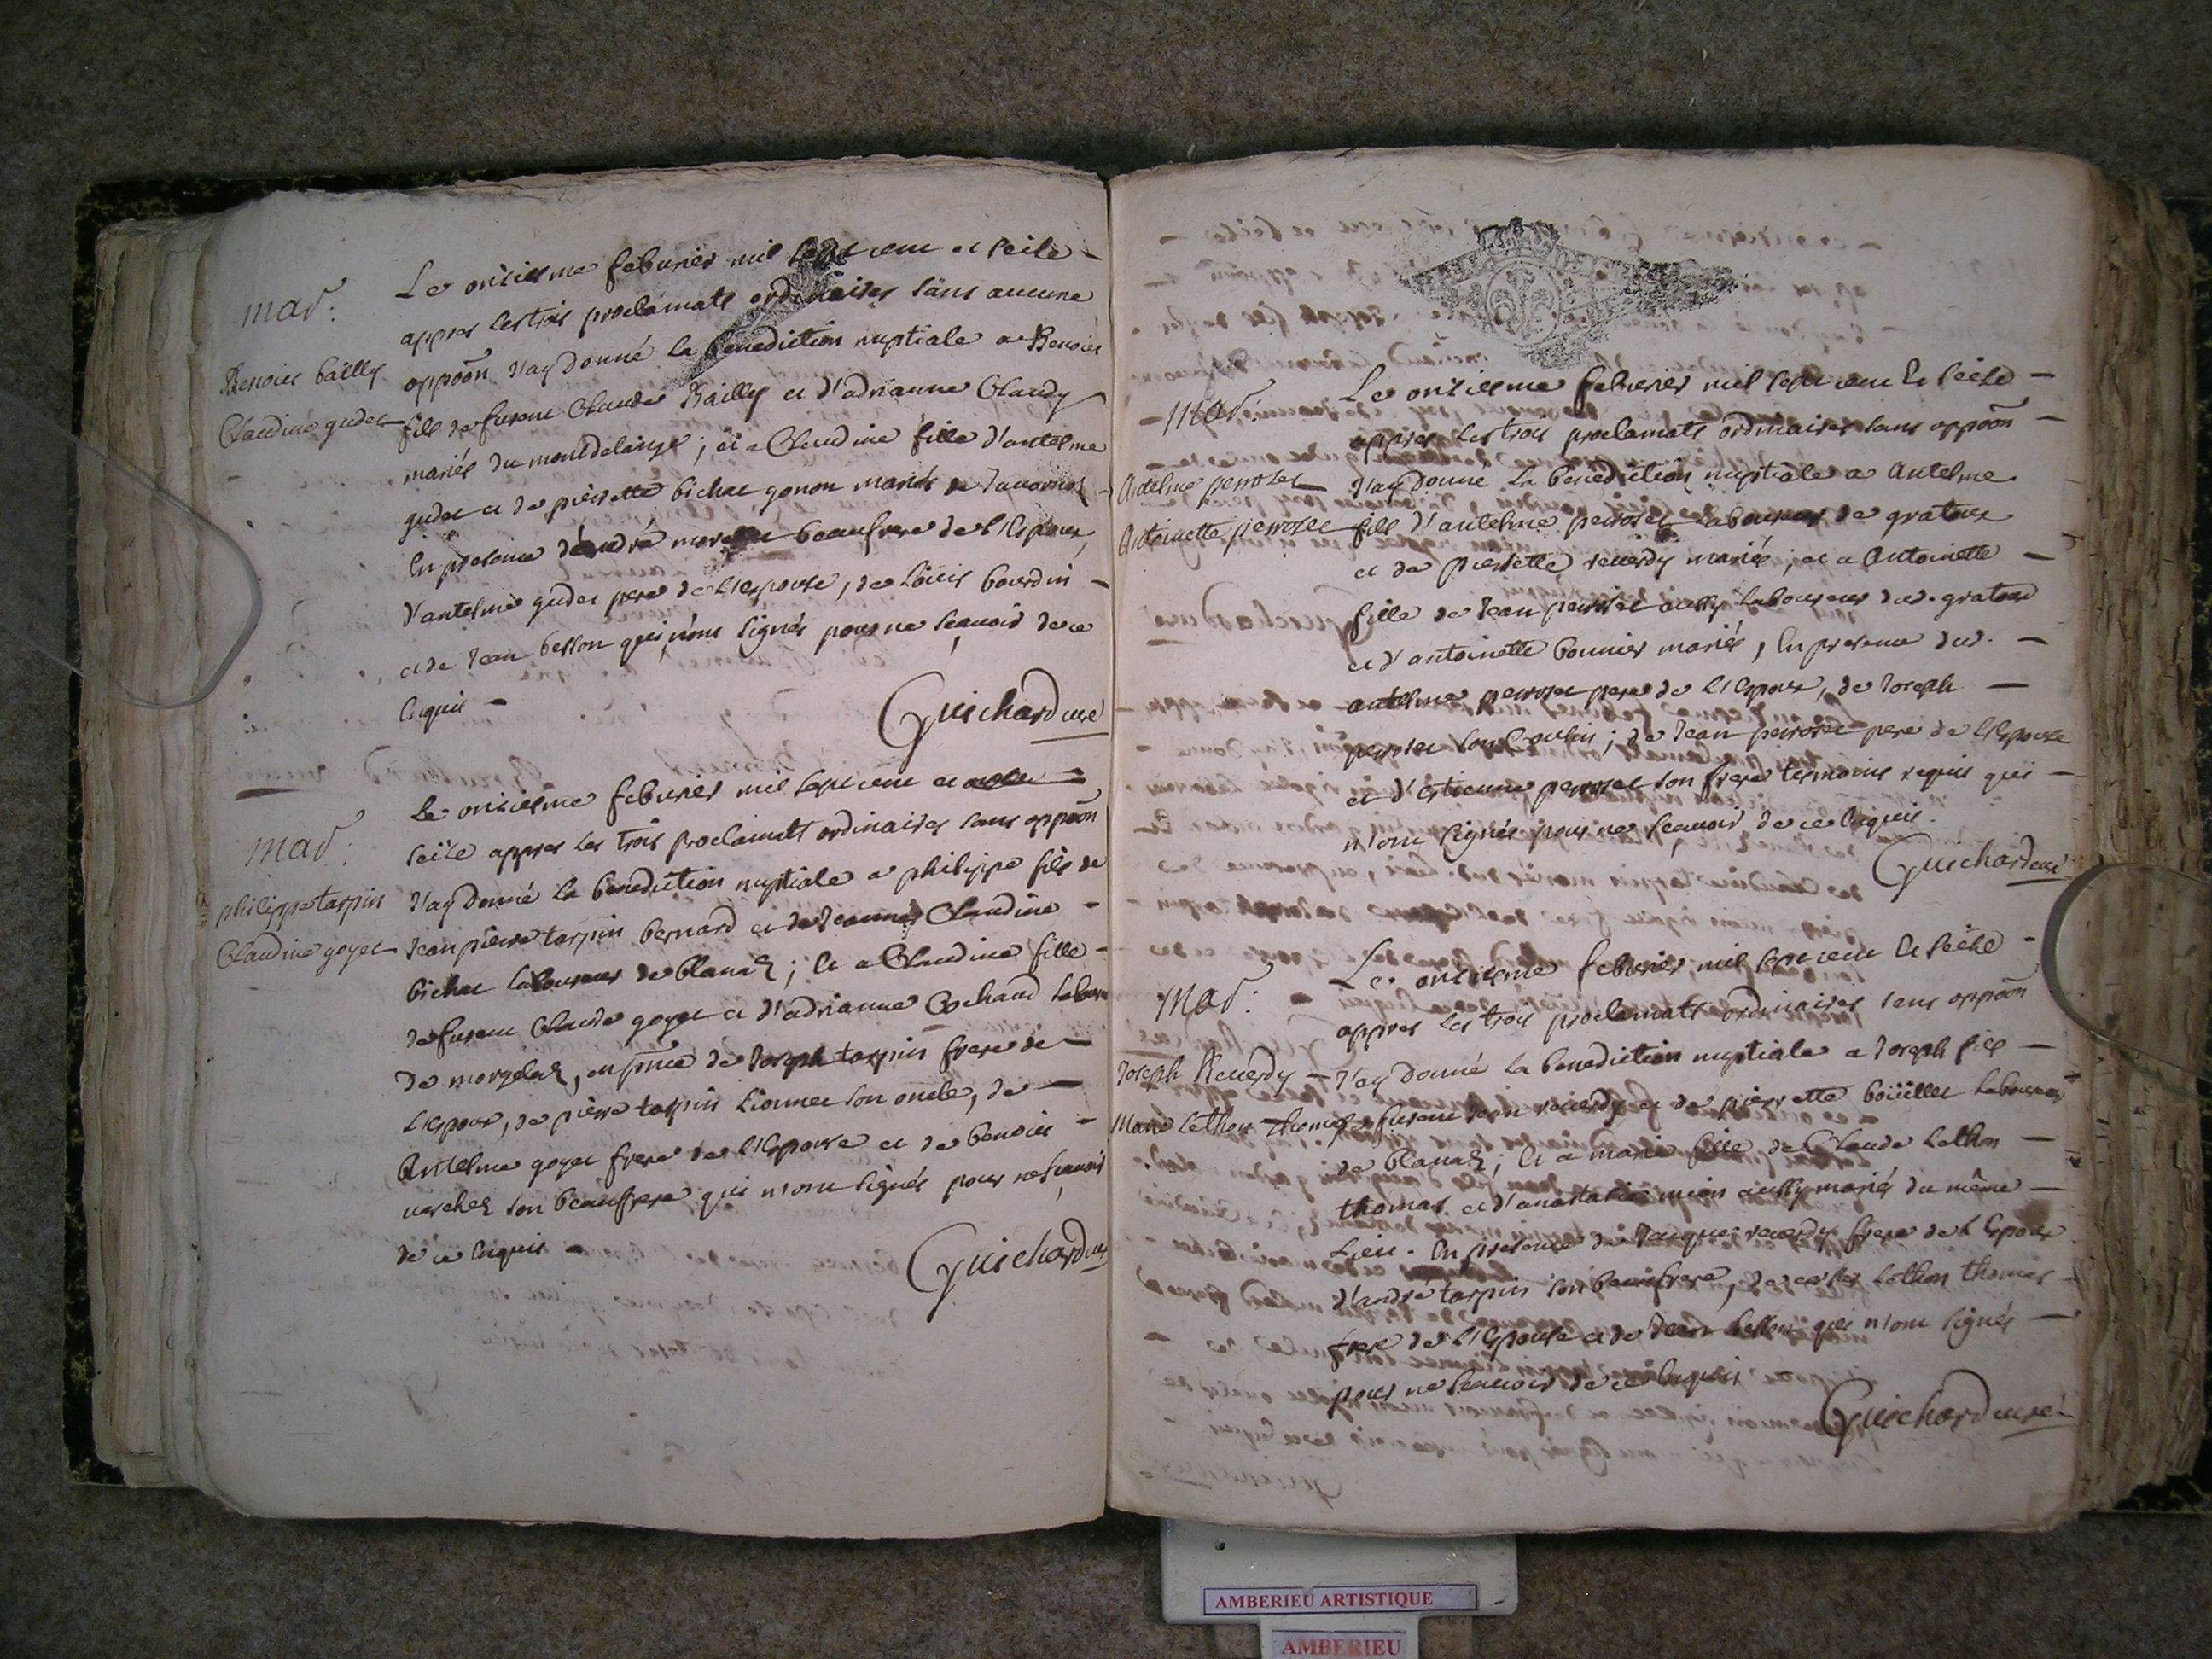 mar.
Benoict bailly
Claudine guder
Le onziesme febvrier mil sept cent et seize
appres les trois proclamats ordinaires sans aucune
oppõon J'ay donné la benediction nuptiale a Benoict
fils de fureur Claude Bailly et d'adrianne Claudy
mariés du montdelange ; et a Claudine fille d'antelme
guder et de pierrette bichat gonon mariés de
En presence d'andré beaufrere de l'Espoux,
d'antelme guder pere de L'Espouse, de Loüis bourdin
et de Jean besson qui n'ont signés pour ne sçavoir de ce
Enquis
Guichard curé
mar.
philippe tarpin
Claudine goyet
Le onziesme febvrier mil sept cent et
seize appres les trois proclamats ordinaires sans oppõon
J'ay donné la benediction nuptiale a philippe fils de
Jean pierre tarpin bernard et de Jeanne Claudine
bichat laboureur de Blanaz ; Et a Claudine fille
de fureur Claude goyet et d'adrianne Cochaud
de morgelaz, en pñce de Joseph tarpin frere de
L'Espoux, de pierre tarpin Lionnet son oncle, de
Antelme goyet frere de L'Espouse et de benoict
son beaufrere qui n'ont signés pour ne sçavoir
de ce Enquis
Guichard curé
mar.
Antelme perroset
Antoinette perroset
Le onziesme febvrier mil sept cent Et seize
appres Les trois proclamats ordinaires sans oppõon
J'ay donné La benediction nuptiale a Antelme
fils d'antelme perroset Laboureur de gratoux
et de pierrette reverdy mariés ; et a Antoinette
fille de Jean perroset aussy Laboureur dud. gratoux
et d'antoinette bonnier mariés, En presence dud.
antelme perroset pere de L'Espoux, de Joseph
perroset son Cousin ; de Jean perroset pere de L'Espouse
et d'Estienne perroset son frere tesmoins requis qui
n'ont signés pour ne sçavoir de ce Enquis.
Guichard curé
mar.
Joseph Reverdy
Marie Lethon thomas
Le onziesme febvrier mil sept cent Et seize
appres Les trois proclamats ordinaires sans oppõon
J'ay donné La benediction nuptiale a Joseph fils
fureur Jean reverdy et de pierrette boüillet Laboureur
de Blanaz ; Et a marie fille de Claude Lethon
thomas et d'anastasie mion aussy mariés du même
Lieu. En presence de Jacques reverdy frere de l'Espoux
d'andré tarpin son beaufrere, de Lethon thomas
frere de L'Espouse et de Jean besson qui n'ont signés
pour ne sçavoir de ce Enquis
Guichard curé
AMBERIEU ARTISTIQUE
AMBERIEU